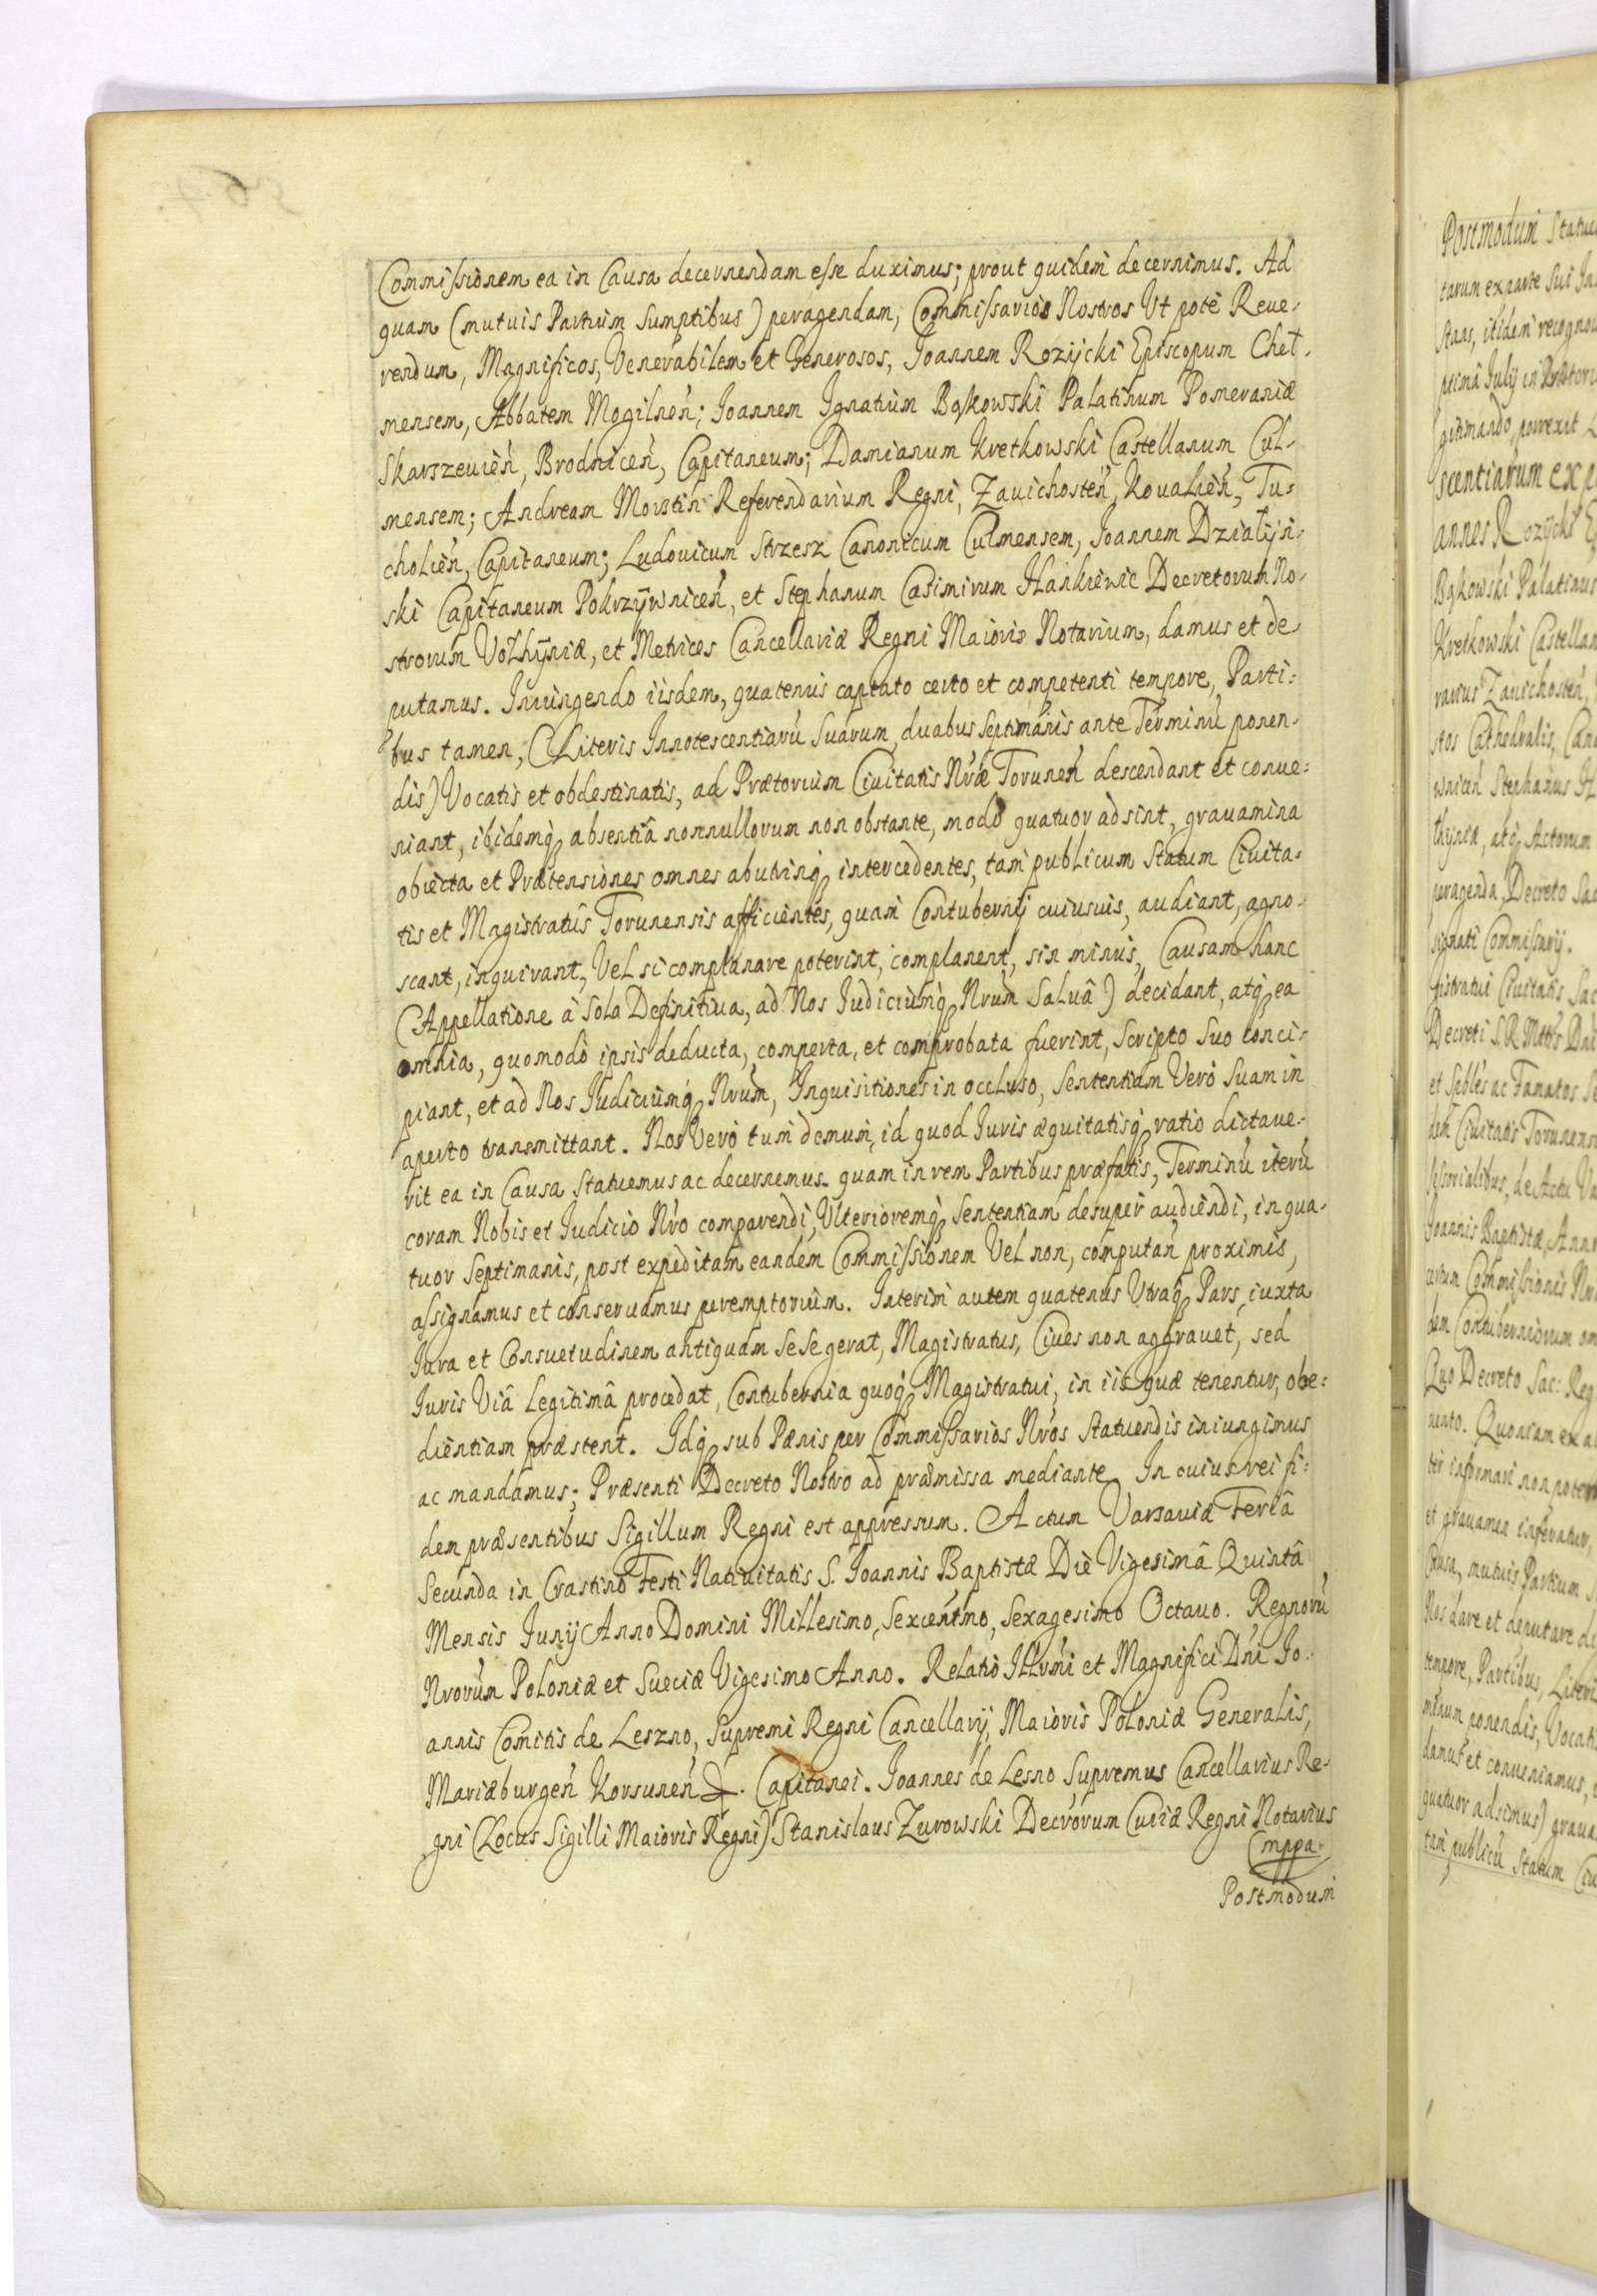 Commissionem ea in Causa decernendam esse duximus; prout quidem decernimus. Ad
quam (mutuis Partium Sumptibus) peragendam, Commissarios Nostros Ut pote Reue-
rendum, Magnificos, Venerabilem et Generosos, Joannem Rozÿcki Episcopum Chel-
mensem, Abbatem Mogilneń; Joannem Ignatium Bąkowski Palatinum Pomeraniæ
Skarszeuień, Brodniceń, Capitaneum; Damianum Kretkowski Castellanum Cul-
mensem; Andream Morstin Referendarium Regni, Zauichosteń, Koualień, Tu-
cholień, Capitaneum; Ludouicum Strzesz Canonicum Culmensem, Joannem Dzialÿn-
ski Capitaneum Pokrzÿwniceń, et Stephanum Casimirum Hankiewic Decretorum No-
strorum Volhÿniæ, et Metrices Cancellariæ Regni Maioris Notarium, damus et de-
putamus. Iniungendo iisdem, quatenus captato certo et competenti tempore, Parti:
bus tamen, (Literis Innotescentiarũ Suarum, duabus Septimanis ante Terminũ ponen-
dis) Vocatis et obdestinatis, ad Prætorium Ciuitatis Nræ Toruneń descendant et conue:
niant, ibidemq́ absentiâ nonnullorum non obstante, modo quatuor adsint, grauamina
obiecta et Prætensiones omnes ab utrinq́ intercedentes, tam publicum Statum Ciuita-
tis et Magistratûs Torunensis afficientes, quam Contubernij cuiusuis, audiant, agno-
scant, inquirant, Vel si complanare poterint, complanent, sin minus, Causam hanc
(Appellatione à Sola Definitiua, ad Nos Judiciumq́ Nrum Saluâ) decidant, atq́ ea
omnia, quomodo ipsis deducta, comperta, et comprobata fuerint, Scripto Suo conci-
piant, et ad Nos Judiciumq́ Nrum, Inquisitiones in occluso, Sententiam Vero Suam in
aperto transmittant. Nos Vero tum demum, id quod Juris æquitatisq́ ratio dictaue-
rit ea in Causa Statuemus ac decernemus. quam in rem Partibus præfatis, Terminũ iterũ
coram Nobis et Judicio Nro comparendi, Ulterioremq́ Sententiam desuper audiendi, in qua-
tuor Septimanis, post expeditam eandem Commissionem Vel non, computań proximis,
assignamus et conseruamus peremptorium. Interim autem quatenus Utraq́ Pars, iuxta
Jura et Consuetudinem antiquam Sese gerat, Magistratus, Ciues non aggrauet, sed
Juris Viâ Legitimâ procedat, Contubernia quoq́ Magistratui, in iis quæ tenentur, obe:
dientiam præstent. Idq́ sub Pænis per Commissarios Nros Statuendis iniungimus
ac mandamus; Præsenti Decreto Nostro ad præmissa mediante. In cuius rei fi:
dem præsentibus Sigillum Regni est appressum. Actum Varsauiæ Feriâ
Secunda in Crastino Festi Natiuitatis S. Joannis Baptistæ Die Vigesimâ Quintâ
Mensis Junij Anno Domini Millesimo, Sexcentmo, Sexagesimo Octauo. Regnorũ
Nrorum Poloniæ et Sueciæ Vigesimo Anno. Relatio Illvmi et Magnifici Dni Jo-
annis Comitis de Leszno, Supremi Regni Cancellarij, Maioris Poloniæ Generalis,
Mariæburgeń Korsuneń &. Capitanei. Joannes de Lesno Supremus Cancellarius Re-
gni (Locus Sigilli Maioris Regni) Stanislaus Zurowski Decrorum Curiæ Regni Notarius
mppa.
Postmodum
Postmodum Statue
tarum ex parte Sui In
Stans, itidem recogno
ptimâ July in Prætori
gitimando, porrexit
scentiarum exp
annes Rozÿcki E
Bąkowski Palatinus
Kretkowski Castellan
rarius Zauichosteń,
stos Cathedralis, Can
wniceń Stephanus H
lhÿniæ, atq́ Actorum
peragenda, Decreto Sac
signati Commissarij.
gistratui Ciuitatis Sac
Decreti S. R. Mttis Dni
et Spbles ac Famatos Se
deń Ciuitatis Torunens
Joannis Baptistæ, Anno
Commissionis Nr
dem Contuberniorum om
Quo Decreto Sac: Reg
nento. Quoniam ex a
ter informari non poter
et grauamen inferatur,
Causa, mutuis Partium S
Nos dare et deputare di
tempore, Partibus, Literi
minum ponendis, Vocati
damus et conueniamus,
quatuor adsimus) graua
tam publicũ Statum Ciu